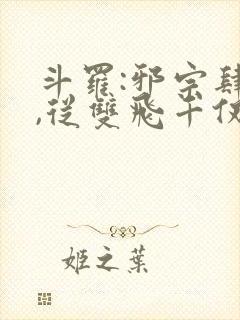 斗羅:邪宗肆
,從雙飛千仞
姬之葉